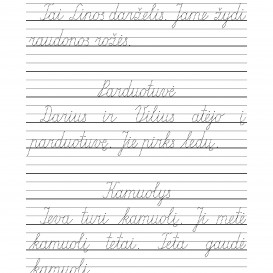 Tai Linos darželis. Jame žydi
raudonos rožės.
Parduotuvė
Darius ir Vilius atėjo į
parduotuvę. Jie pirks ledų.
Kamuolys
Ieva turi kamuolį. Ji metė
kamuolį tetai. Teta gaudė
kamuolį.